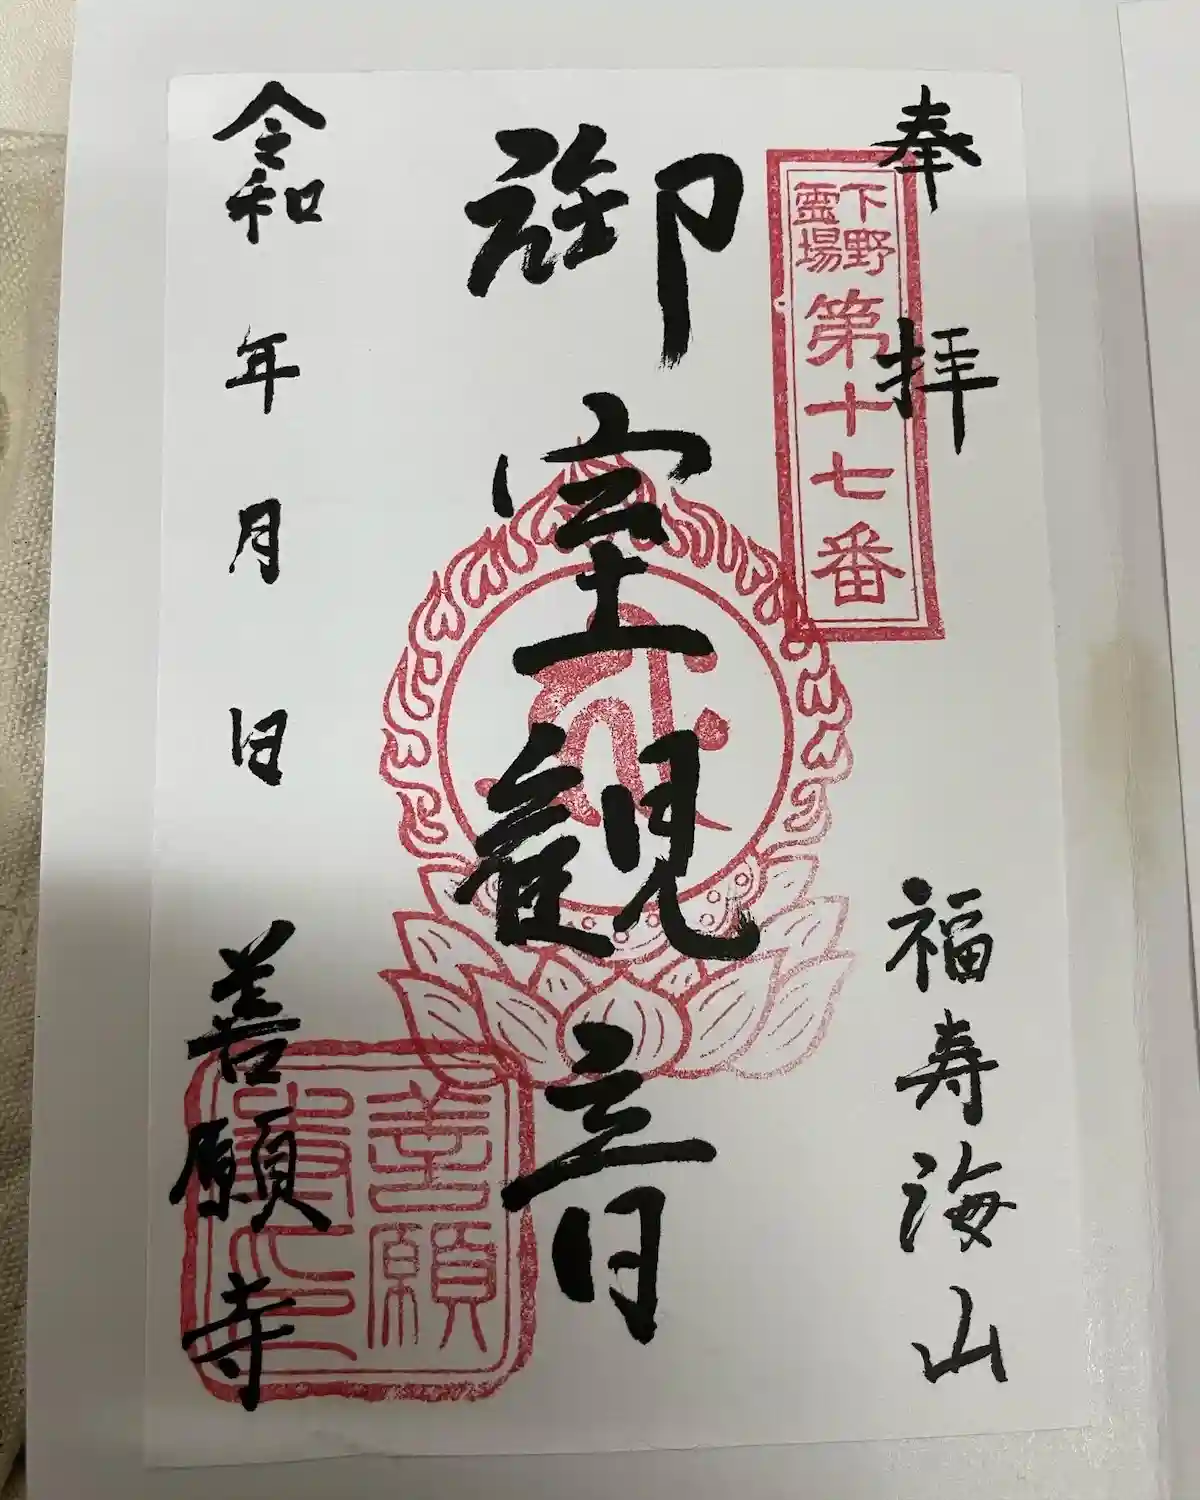 奉拝
下野
霊場
第十七番
福寿海山
御室観音
令和 年 月 日
善願寺
善願